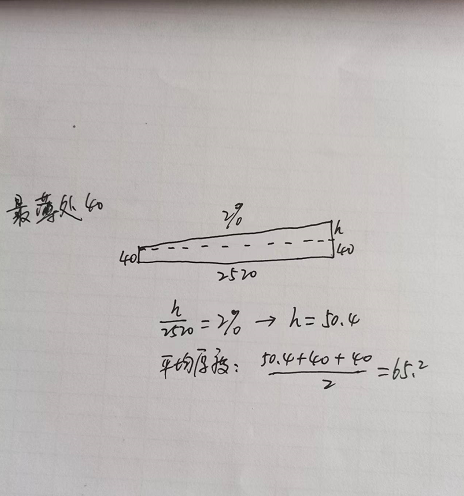 最薄处40
2%
h
40
40
2520
h/2520 = 2% → h = 50.4
平均厚度: (50.4+40+40)/2 = 65.2